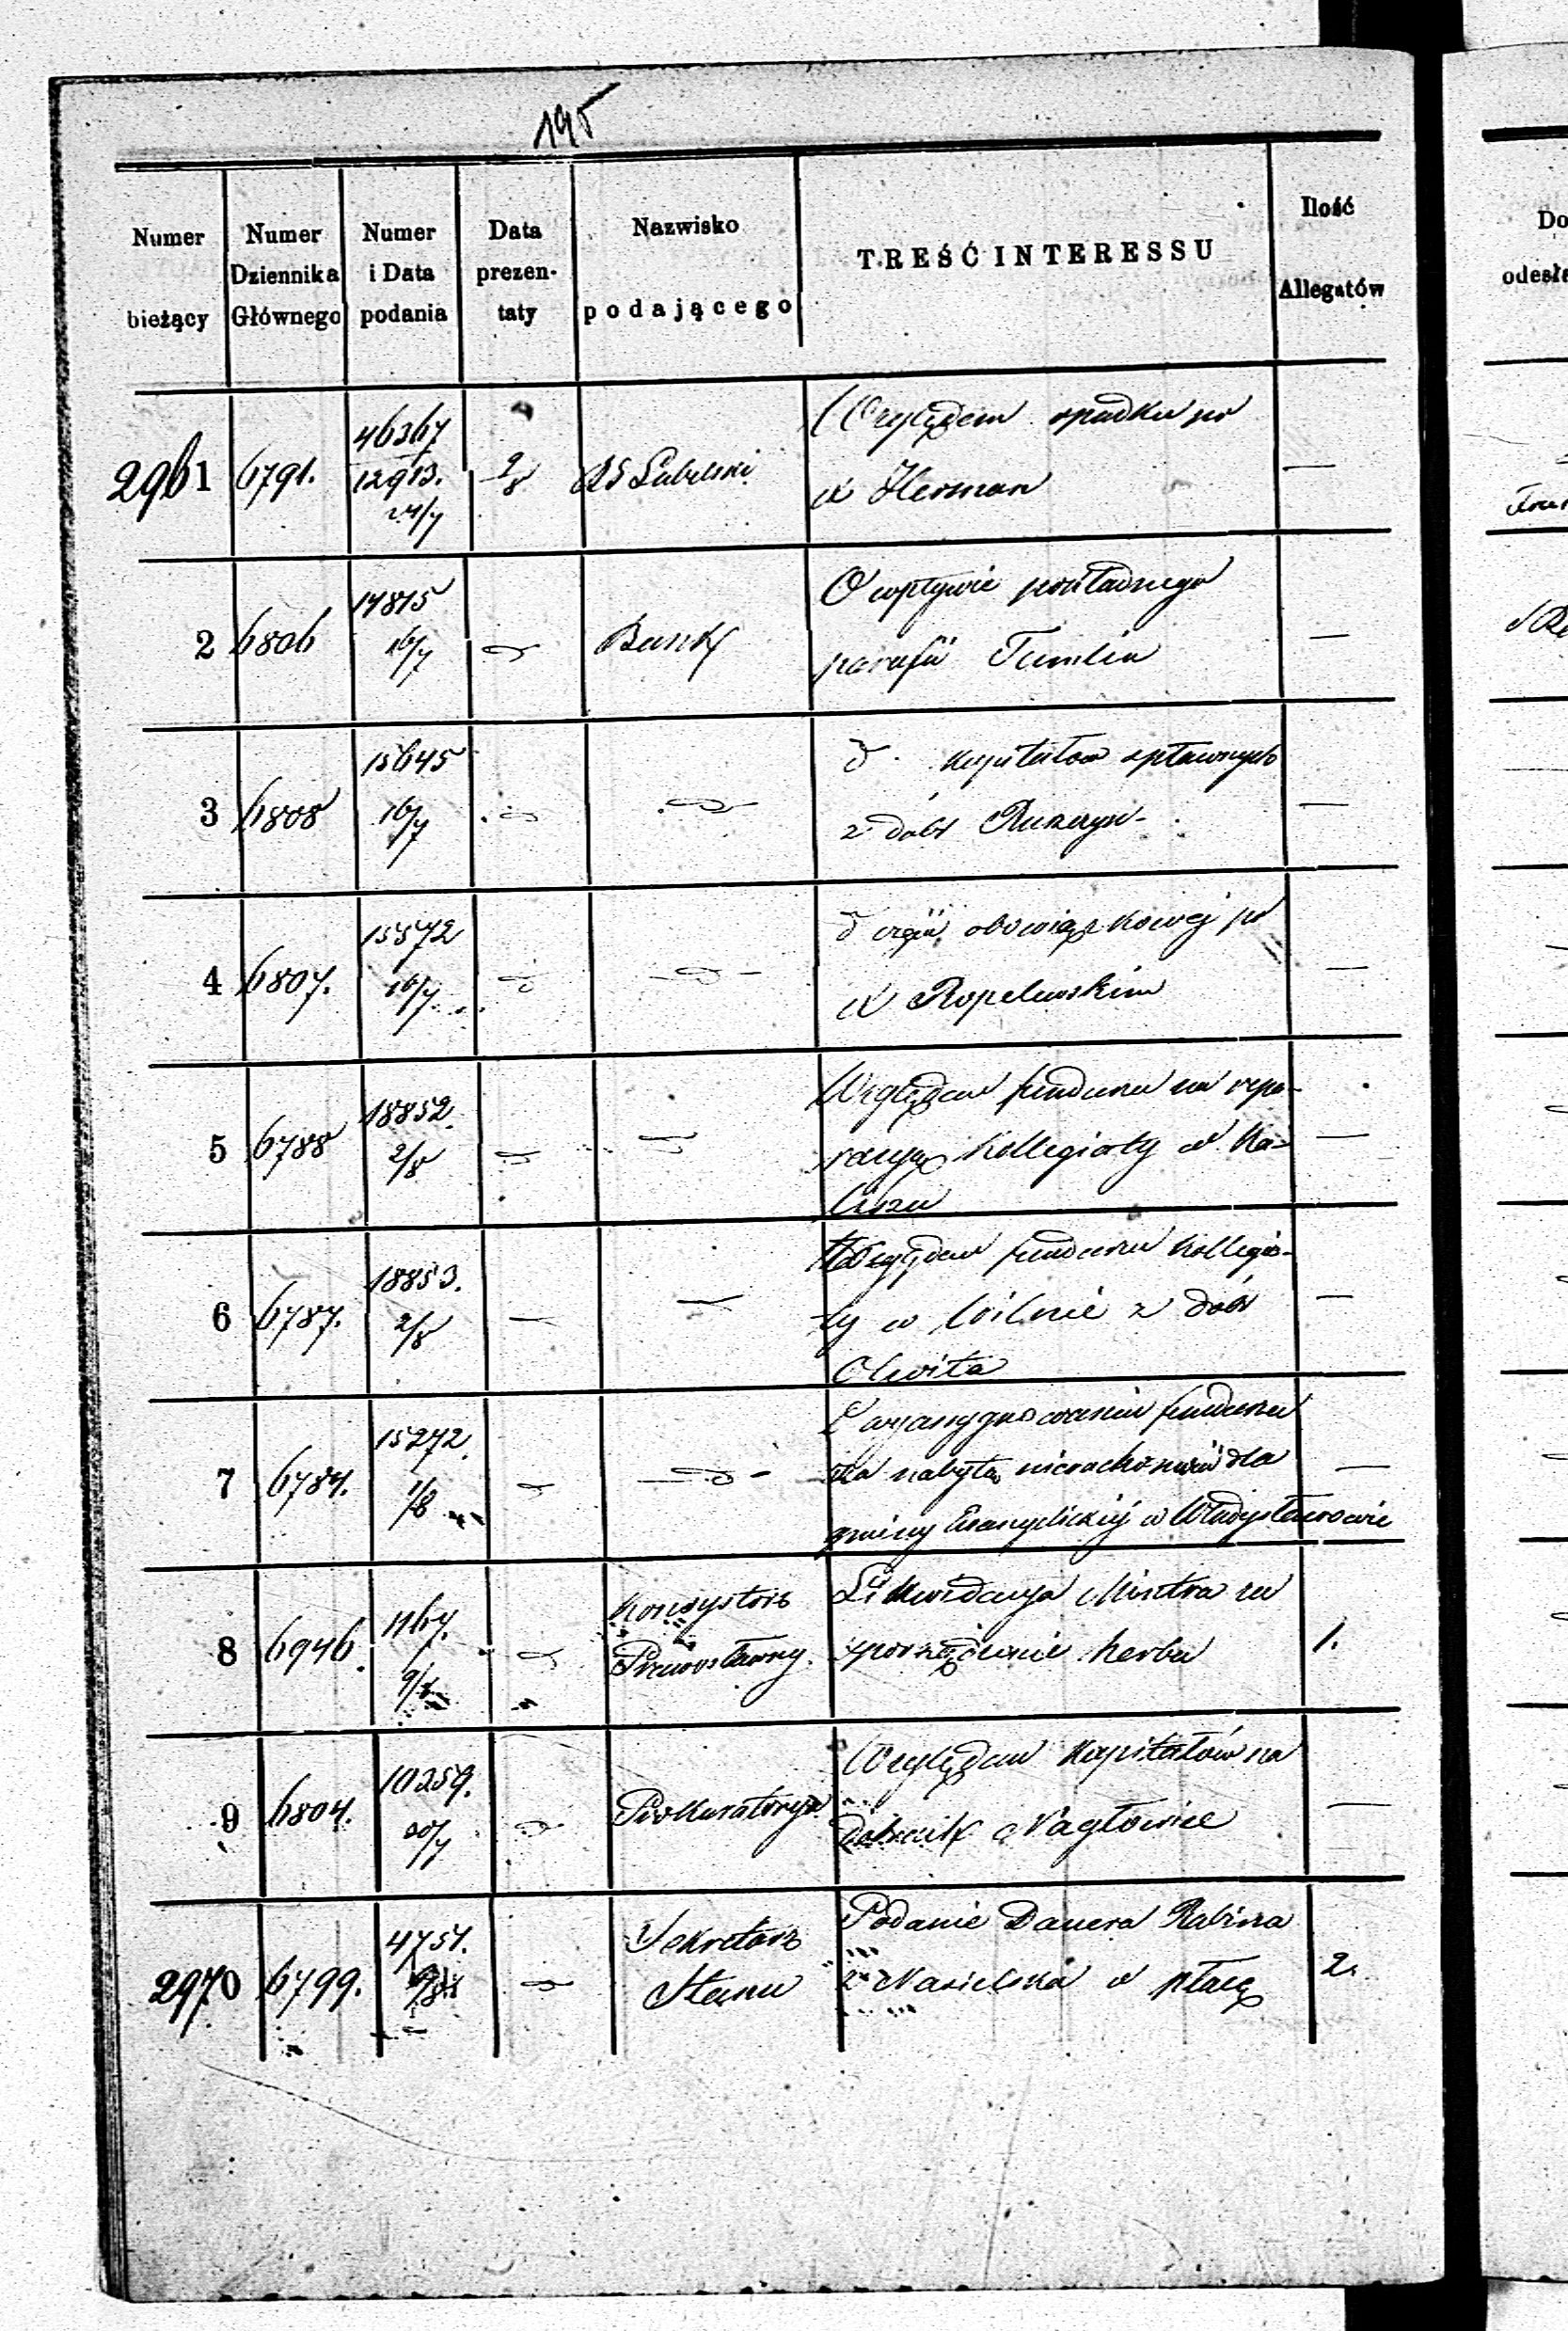 195
Numer bieżący
Numer Dziennika Głównego
Numer i Data podania
Data prezentaty
Nazwisko podającego
TREŚĆ INTERESSU
Ilość Allegatów
2961 6791. 46367 12913. 24/7 9/8 RG Lubelski Względem spadku po
X Herman —
2 6806 14815 16/7 d Bank O wpływie pokładnego
parafii Tumlin —
3 6808 15645 16/7 d d d kapitałów spławnych
z dóbr —
4 6807. 15572 16/7 d d d części obowiązkowej po
X Ropelewskim —
5 6788 18852 2/8 — — Względem funduszu na repa-
racyę Kollegiaty w Ka-
liszu —
6 6787. 18853. 2/8 — — Względem funduszu Kollegia-
ty w Wilnie z dóbr
Olwita —
7 6784. 15272. 1/8 — d wyasygnowaniu funduszu
na nabytą nieruchomość dla
gminy Ewangelickiej w Władysławowie —
8 6946. 1167. 9/8 d Konsystorz
Prawosławny. Likwidacya Mintra za
sporządzenie herbu 1.
9 6804. 10259. 20/7 d Prokuratorya Względem Kapitałów na
dobrach Nagłowice —
2970 6799. 4751. 9/8 d Sekretarz
Stanu Podanie Dawera Rabina
z Nasielska o płacę 2.
Do
odesła